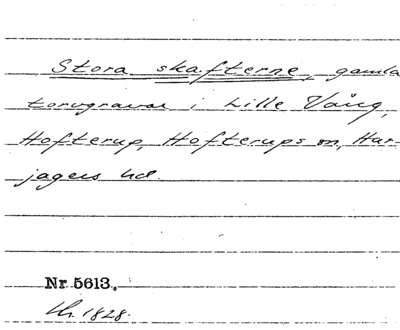 Stora skafterne, gamla
torvgravar i Lille Vång,
Hofterup, Hofterups sn, Har-
jagers hd.
Nr 5613.
Chr. 1828.